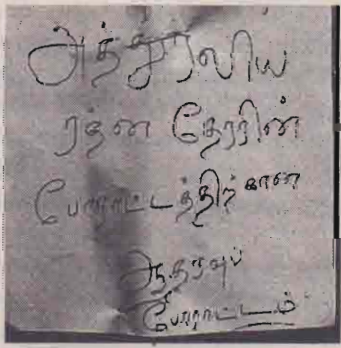 அத்துரலிய
ரத்ன தேரரின்
போராட்டத்திற்கான
ஆதரவுப்
போராட்டம்